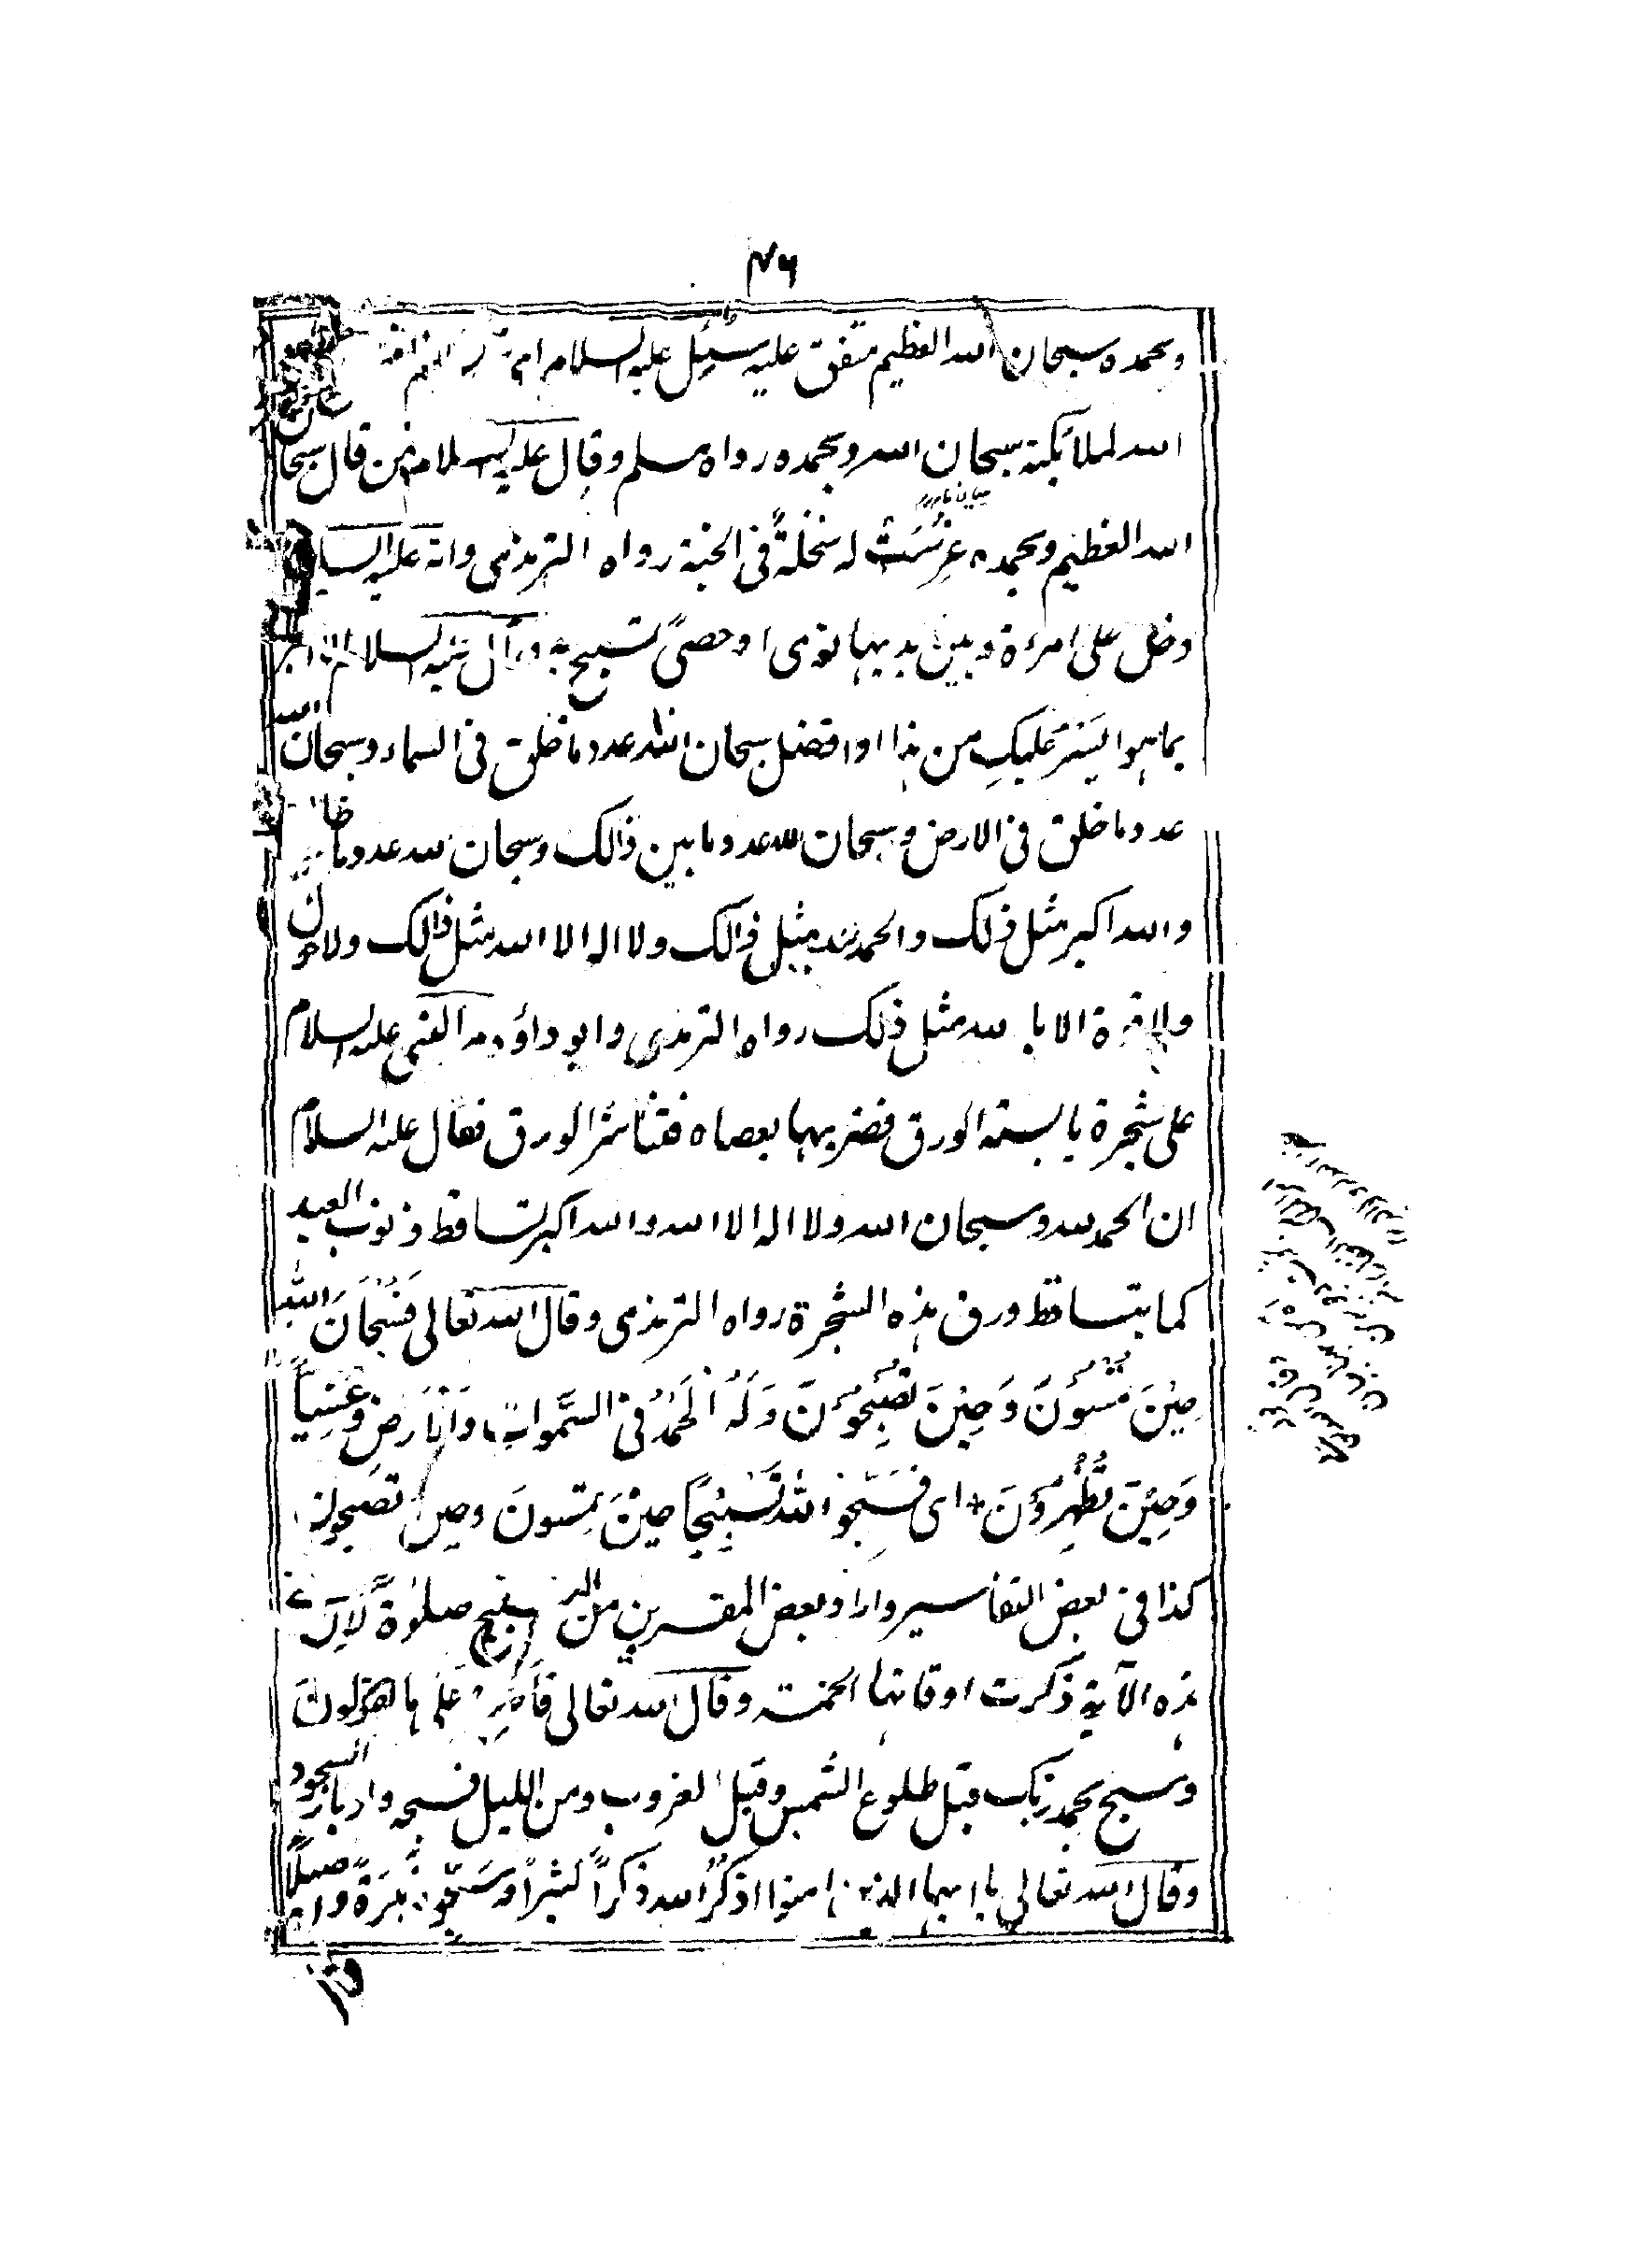 ۴۶
وبحمده سبحان الله العظيم متفق عليه سئل عليه السلام اى
الله لملائكته سبحان الله وبحمده رواه مسلم وقال عليه السلام من قال سبحان
الله العظيم وبحمده غُرِسَتْ له نخلةٌ فى الجنة رواه الترمذى وانه عليه السلام
دخل على امرءة وبين يديها نوى او حصىً تسبح به وقال عليه السلام الا اخبرك
بما هو ايسَرُ عليكِ من هذا او افضل سبحان الله عدد ما خلق فى السماء وسبحان الله
عدد ما خلق فى الارض وسبحان الله عدد ما بين ذالك وسبحان الله عدد ما خالق
والله اكبر مثل ذلك والحمد لله مثل ذالك ولا اله الا الله مثل ذالك ولا حول
ولا قوة الا بالله مثل ذلك رواه الترمذى وابو داؤد مر النبى عليه السلام
على شجرة يابسته الورق فضربها بعصاه فتناثر الورق فقال عليه السلام
ان الحمد لله وسبحان الله ولا اله الا الله والله اكبر تساقط ذنوب العبد
كما يتساقط ورق هذه الشجرة رواه الترمذى وقال الله تعالى فَسُبْحَانَ الله
حِيْنَ تُمْسُوْنَ وَحِيْنَ تُصْبِحُوْنَ وَلَهُ الْحَمْدُ فى السَّموات وَالْاَرَضِ وَعَشِيّاً
وَحِيْنَ تُظْهِرُوْنَ + اى فَسَبِّحُوْا اللهَ تَسْبِيْحًا حِيْنَ تُمْسُونَ وحين تصبحون
كذا فى بعض التفاسير واراد بعض المفسرين من التسبيح صلوٰة لِاَنَّ فى
هذه الآية ذكرت اوقاتها الخمسة وقال الله تعالى فَاصْبِرْ عَلٰى ما يقولون
وسبح بحمد ربك قبل طلوع الشمس وقبل الغروب ومن الليل فسبحه وادبار السجود
وقال الله تعالى يا ايها الذين امنوا اذكرُوا الله ذكراً كثيراً وَسَبِّحُوْه بُكْرَةً واصيلاً